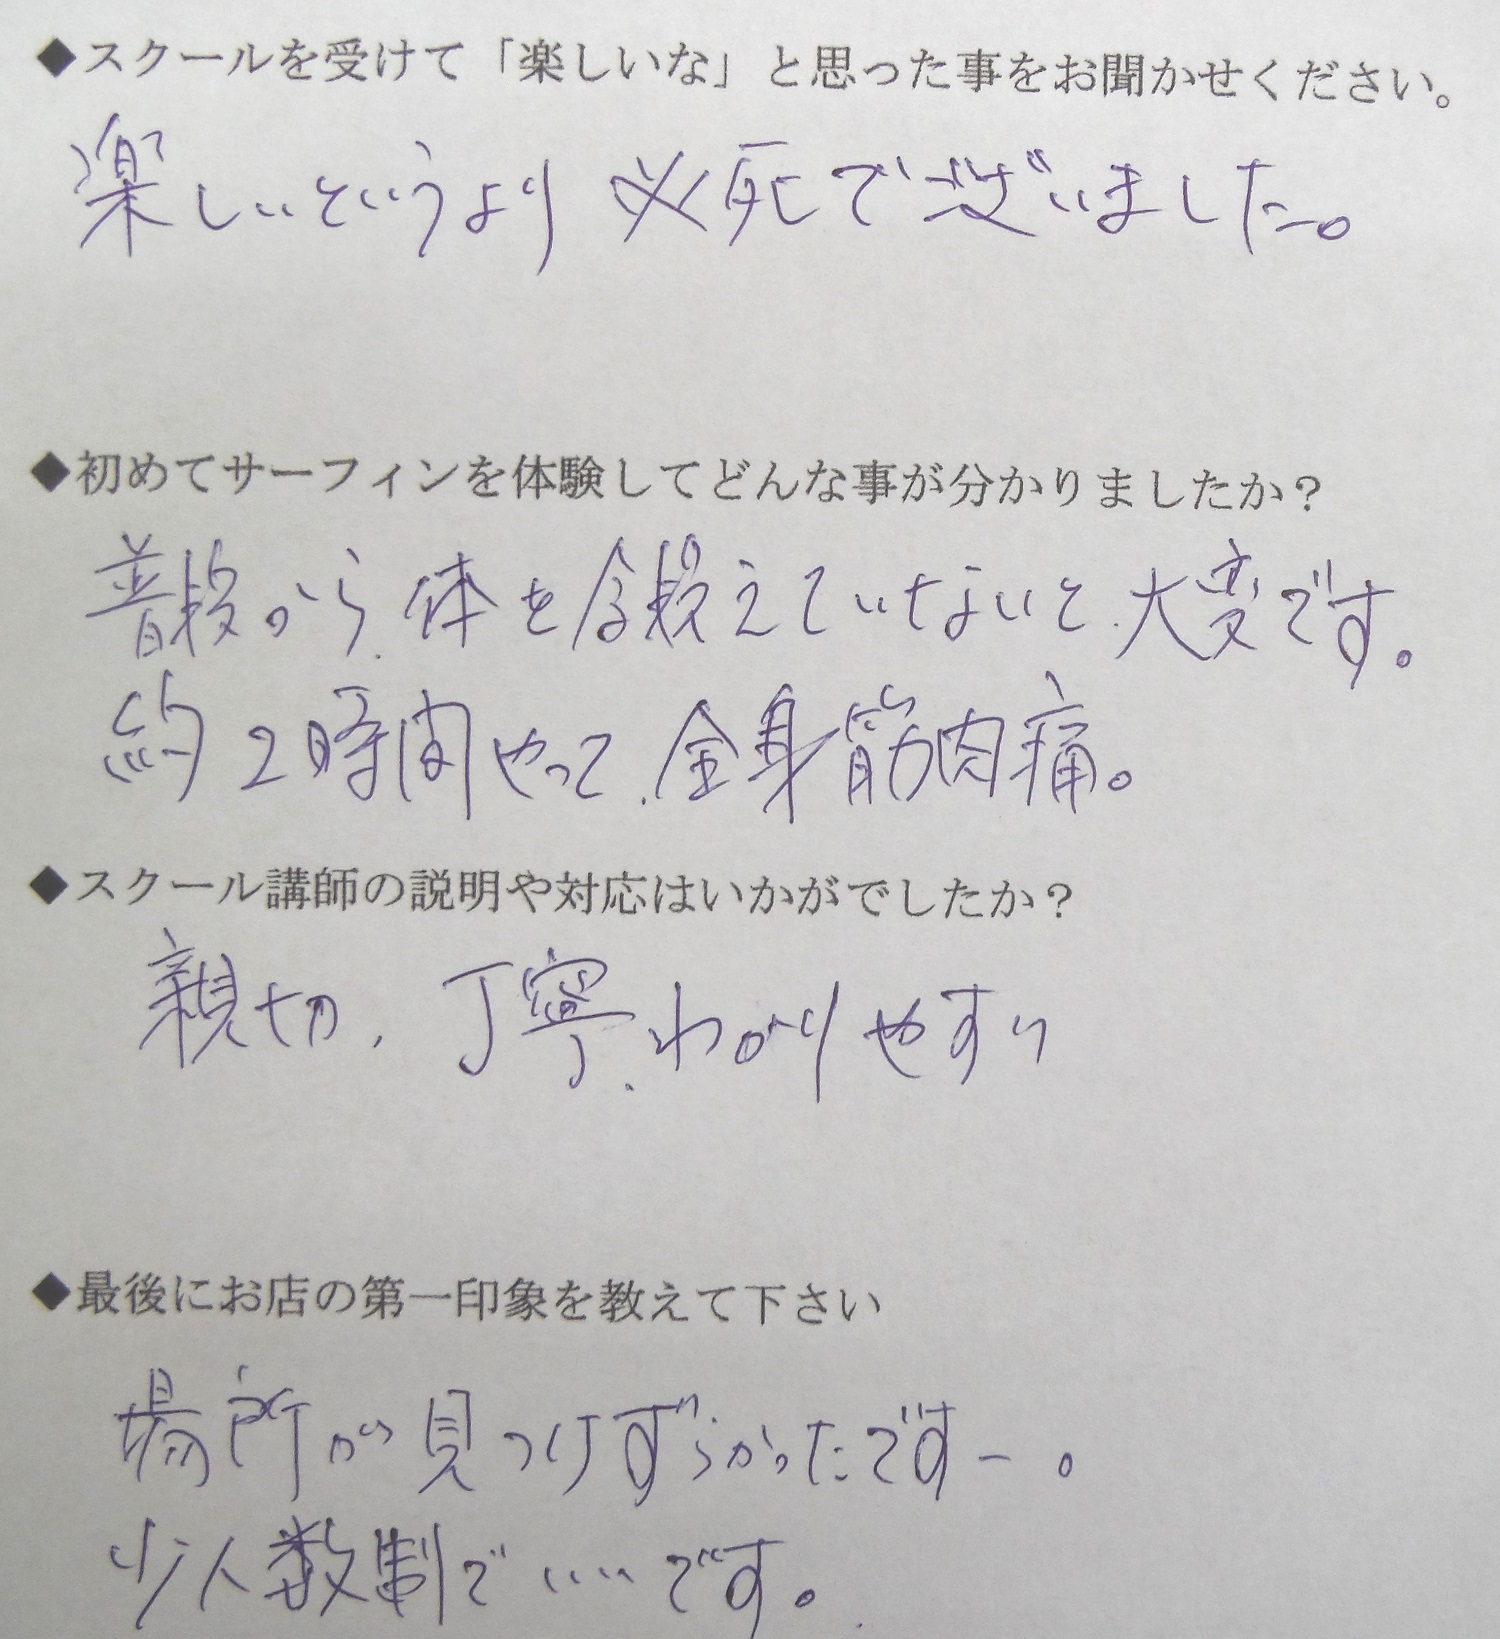 ◆スクールを受けて「楽しいな」と思った事をお聞かせください。
楽しいというより必死でございました。
◆初めてサーフィンを体験してどんな事が分かりましたか？
普段から、体を鍛えていないと、大変です。
約2時間やって、全身筋肉痛。
◆スクール講師の説明や対応はいかがでしたか？
親切、丁寧、わかりやすい
◆最後にお店の第一印象を教えて下さい
場所が見つけずらかったですー。
少人数制でいいです。